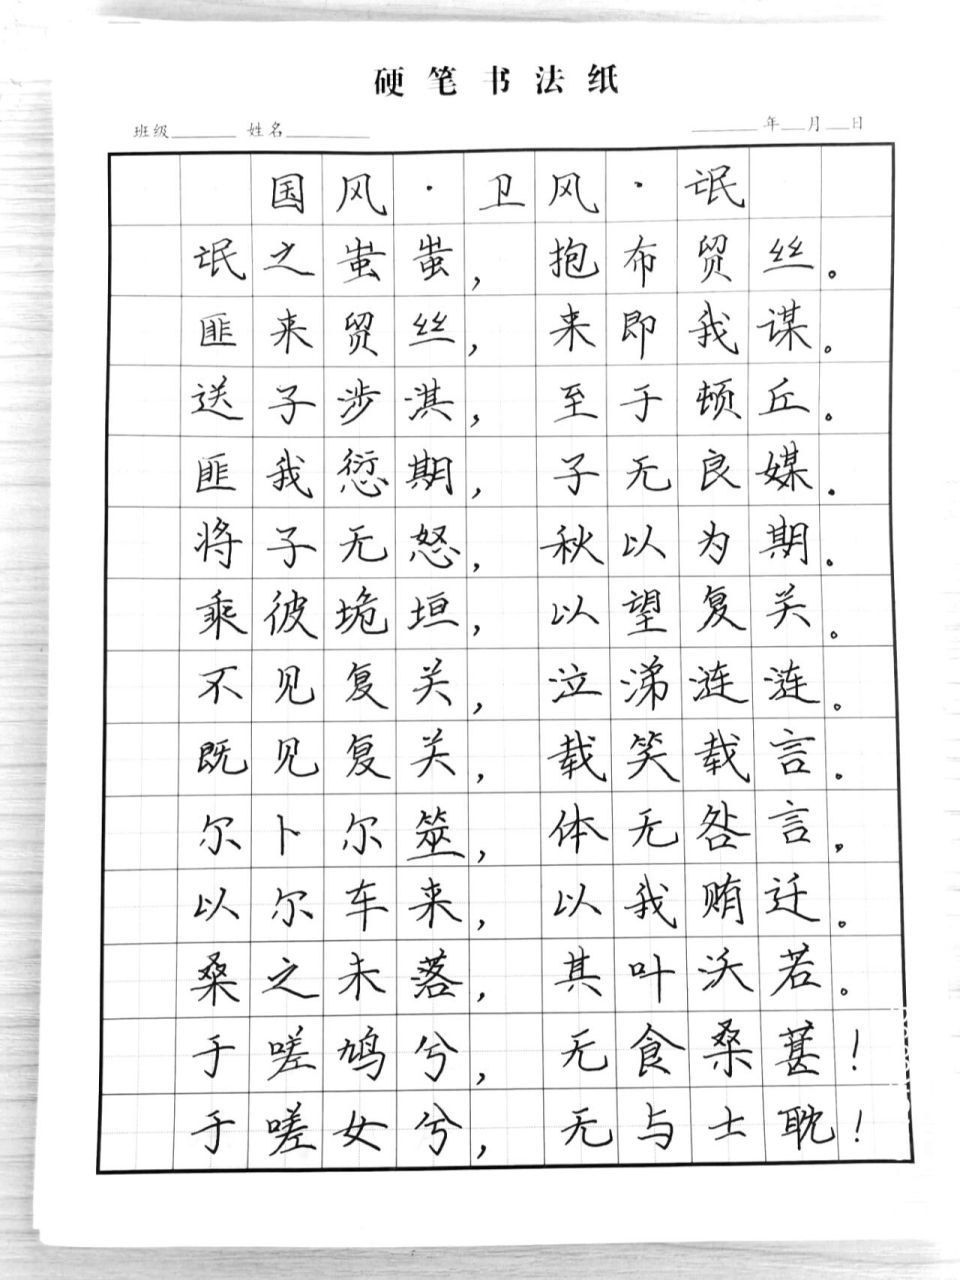 硬笔书法纸
班级 姓名 年 月 日
国风·卫风·氓
氓之蚩蚩，抱布贸丝。
匪来贸丝，来即我谋。
送子涉淇，至于顿丘。
匪我愆期，子无良媒.
将子无怒，秋以为期。
乘彼垝垣，以望复关。
不见复关，泣涕涟涟。
既见复关，载笑载言。
尔卜尔筮，体无咎言，
以尔车来，以我贿迁。
桑之未落，其叶沃若。
于嗟鸠兮，无食桑葚！
于嗟女兮，无与士耽！